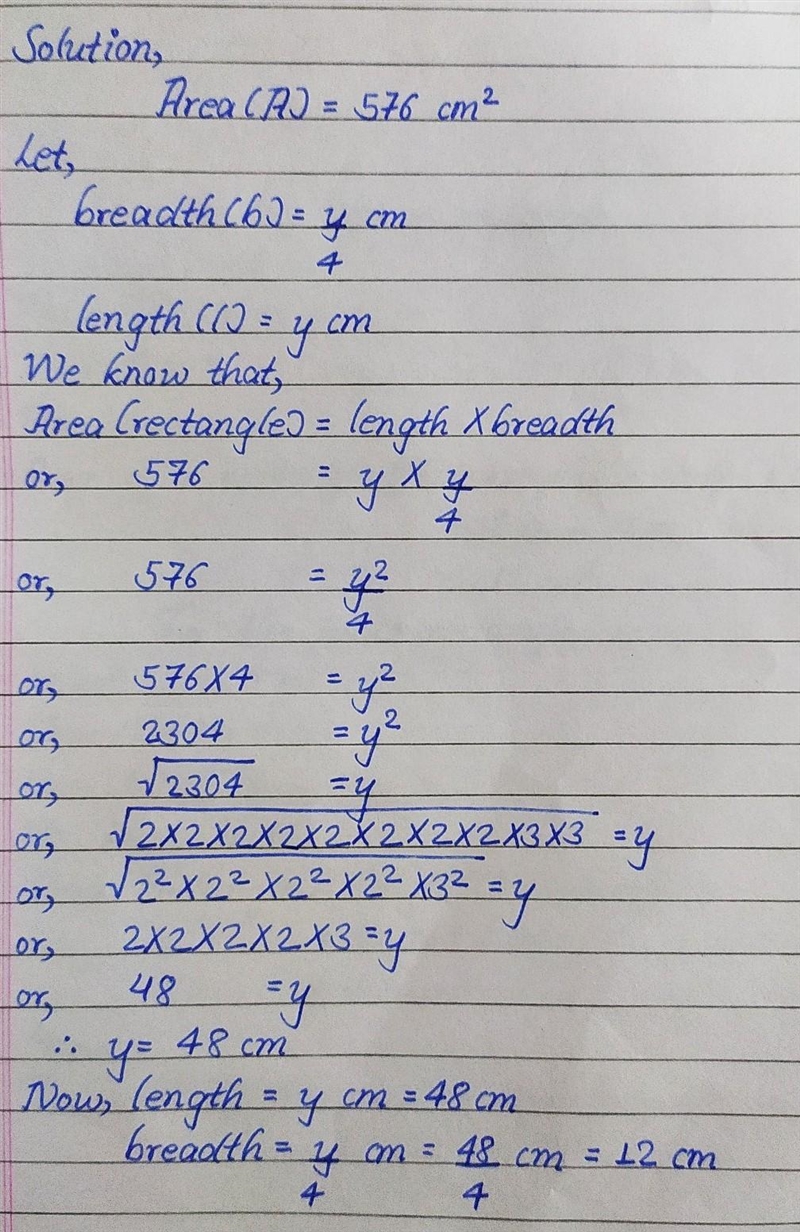 Solution,
Area (A) = 576 cm²
Let,
breadth (b) = y/4 cm
length (l) = y cm
We know that,
Area (rectangle) = length × breadth
or, 576 = y × y/4
or, 576 = y²/4
or, 576×4 = y²
or, 2304 = y²
or, √2304 = y
or, √2×2×2×2×2×2×2×2×3×3 = y
or, √2²×2²×2²×2²×3² = y
or, 2×2×2×2×3 = y
or, 48 = y
∴ y = 48 cm
Now, length = y cm = 48 cm
breadth = y/4 cm = 48/4 cm = 12 cm